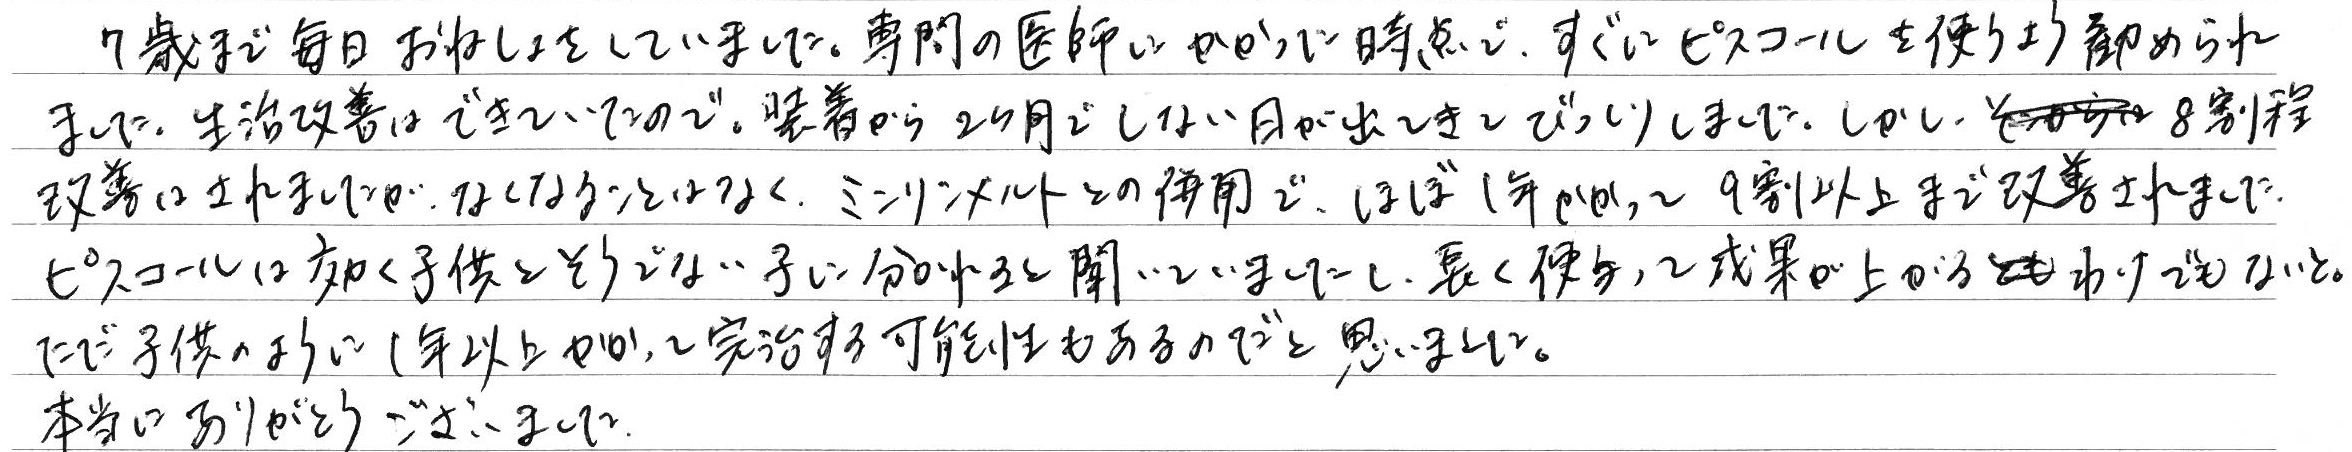 7歳まで毎日おねしょをしていました。専門の医師にかかった時点で、すぐにピスコールを使うよう勧められ
ました。生活改善はできていたので。装着から2ヶ月でしない日が出てきてびっくりしました。しかし、8割程
改善はされましたが、なくなることはなく、ミニリンメルトとの併用で、ほぼ1年かかって9割以上まで改善されました。
ピスコールは効く子供とそうでない子に分かれると聞いていましたし、長く使って成果が上がるわけでもないと。
ただ子供のように1年以上かかって完治する可能性もあるのだと思いました。
本当にありがとうございました。